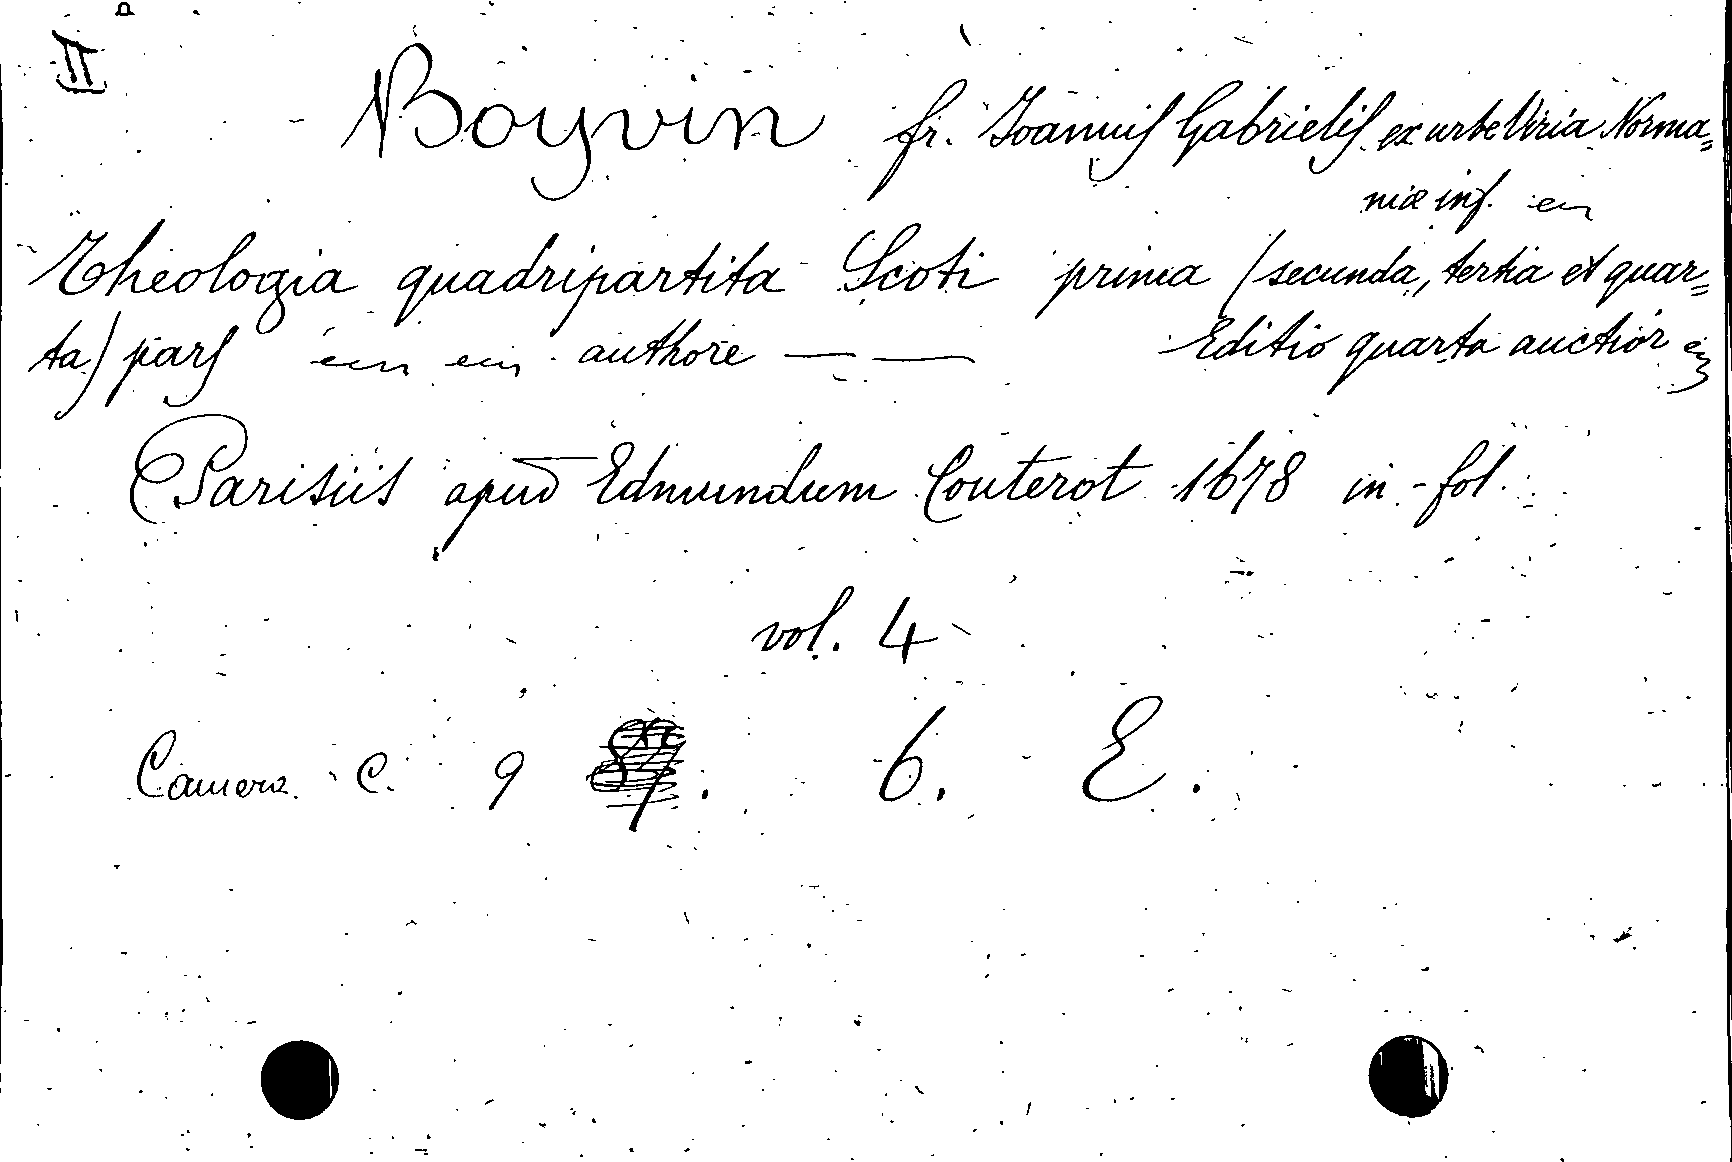 II
Boyvin fr. Joannis Gabrielis ex urbe Viria Norma=
niæ inf.
Theologia quadripartita Scoti prima (secunda, tertia et quar=
ta) pars authore — — Editio quarta auctior
Parisiis apud Edmundum Couterot 1678 in-fol.
vol. 4
Camera C. 9 . 6. E.